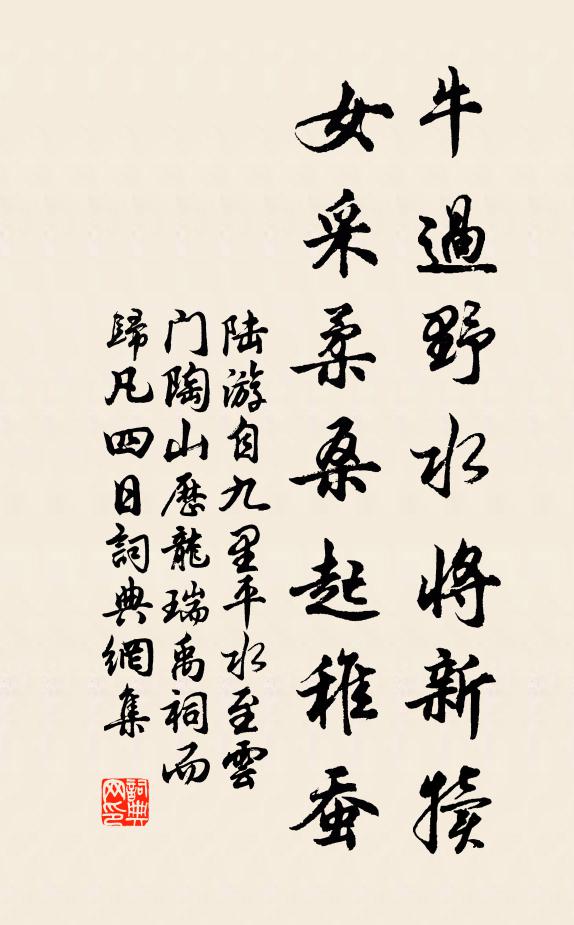 牛過野水將新犢
女采柔桑起稚蚕
陆游自九里平水至雲
门陶山歷龍瑞禹祠而
歸凡四日詞典網集
詞典网印